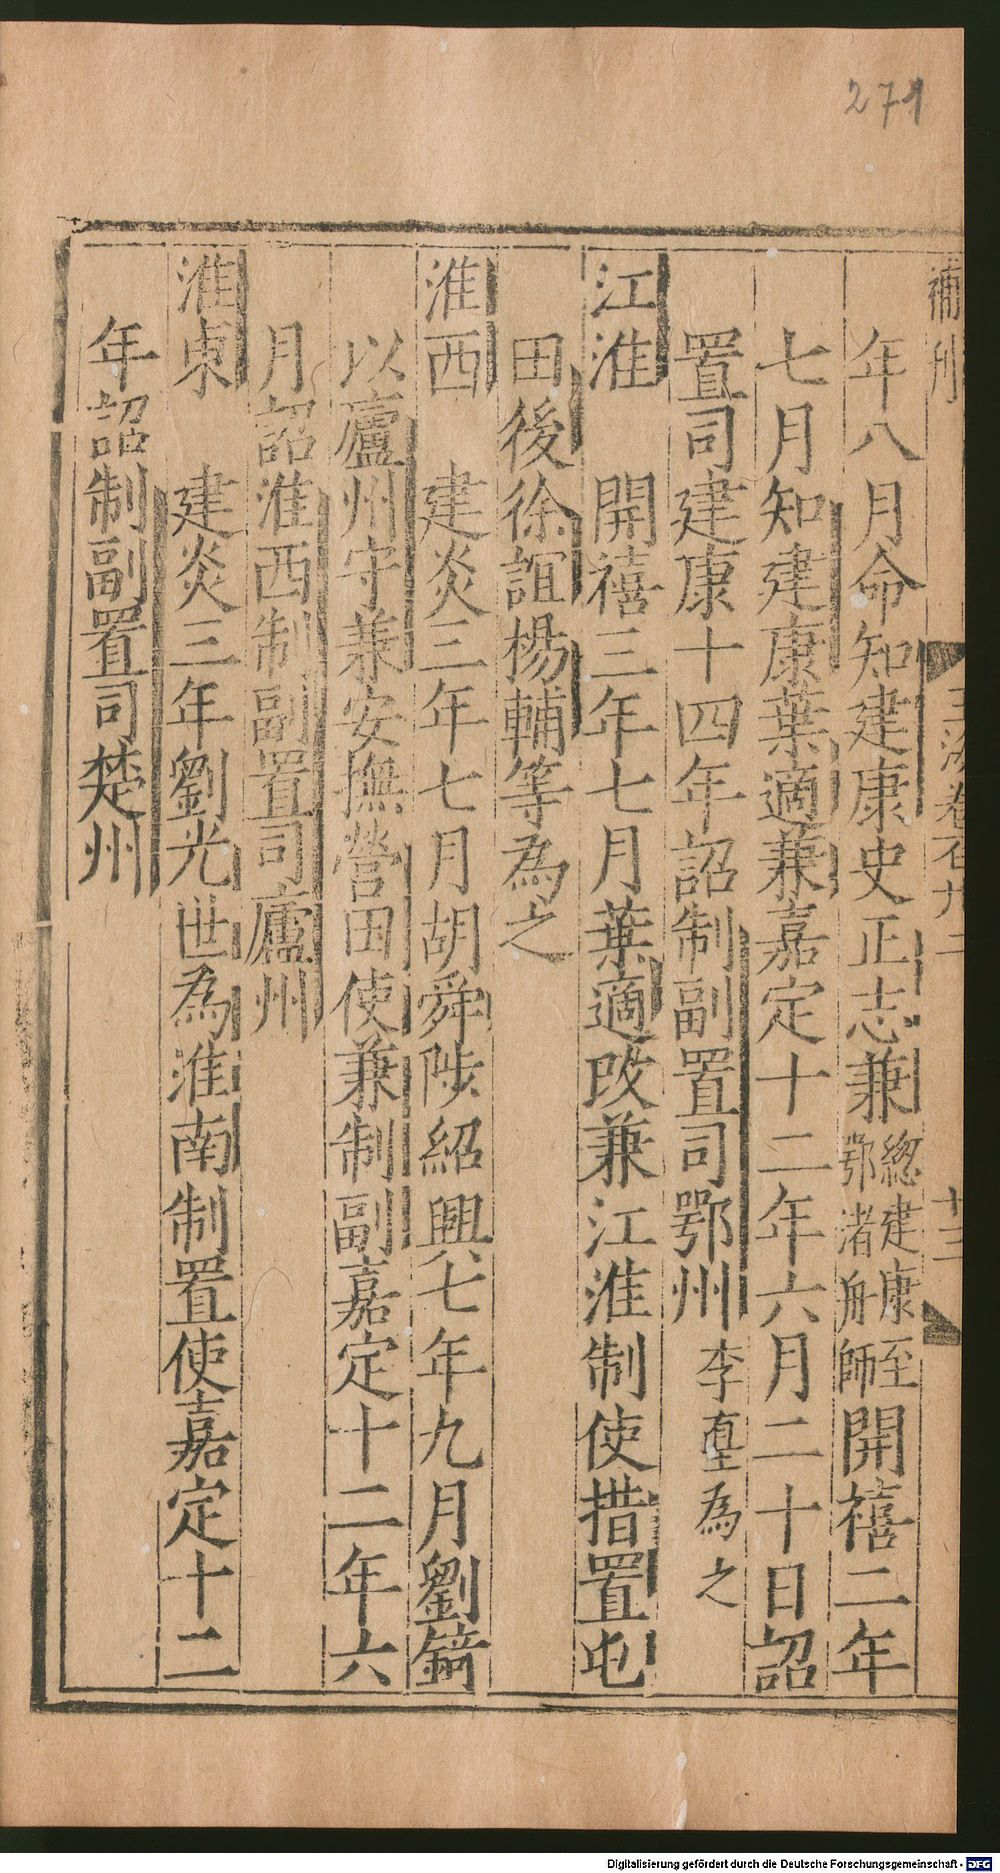 271
補刊
玉海卷百九二
廿三
年八月命知建康史正志兼總建康至鄂渚舟師開禧二年
七月知建康葉適兼嘉定十二年六月二十日詔
置司建康十四年詔制副置司鄂州李𡌴為之
江淮 開禧三年七月葉適改兼江淮制使措置屯
田後徐誼楊輔等為之
淮西 建炎三年七月胡舜陟紹興七年九月劉錡
以廬州守兼安撫營田使兼制副嘉定十二年六
月詔淮西制副置司廬州
淮東 建炎三年劉光世為淮南制置使嘉定十二
年詔制副置司楚州
Digitalisierung gefördert durch die Deutsche Forschungsgemeinschaft - DFG